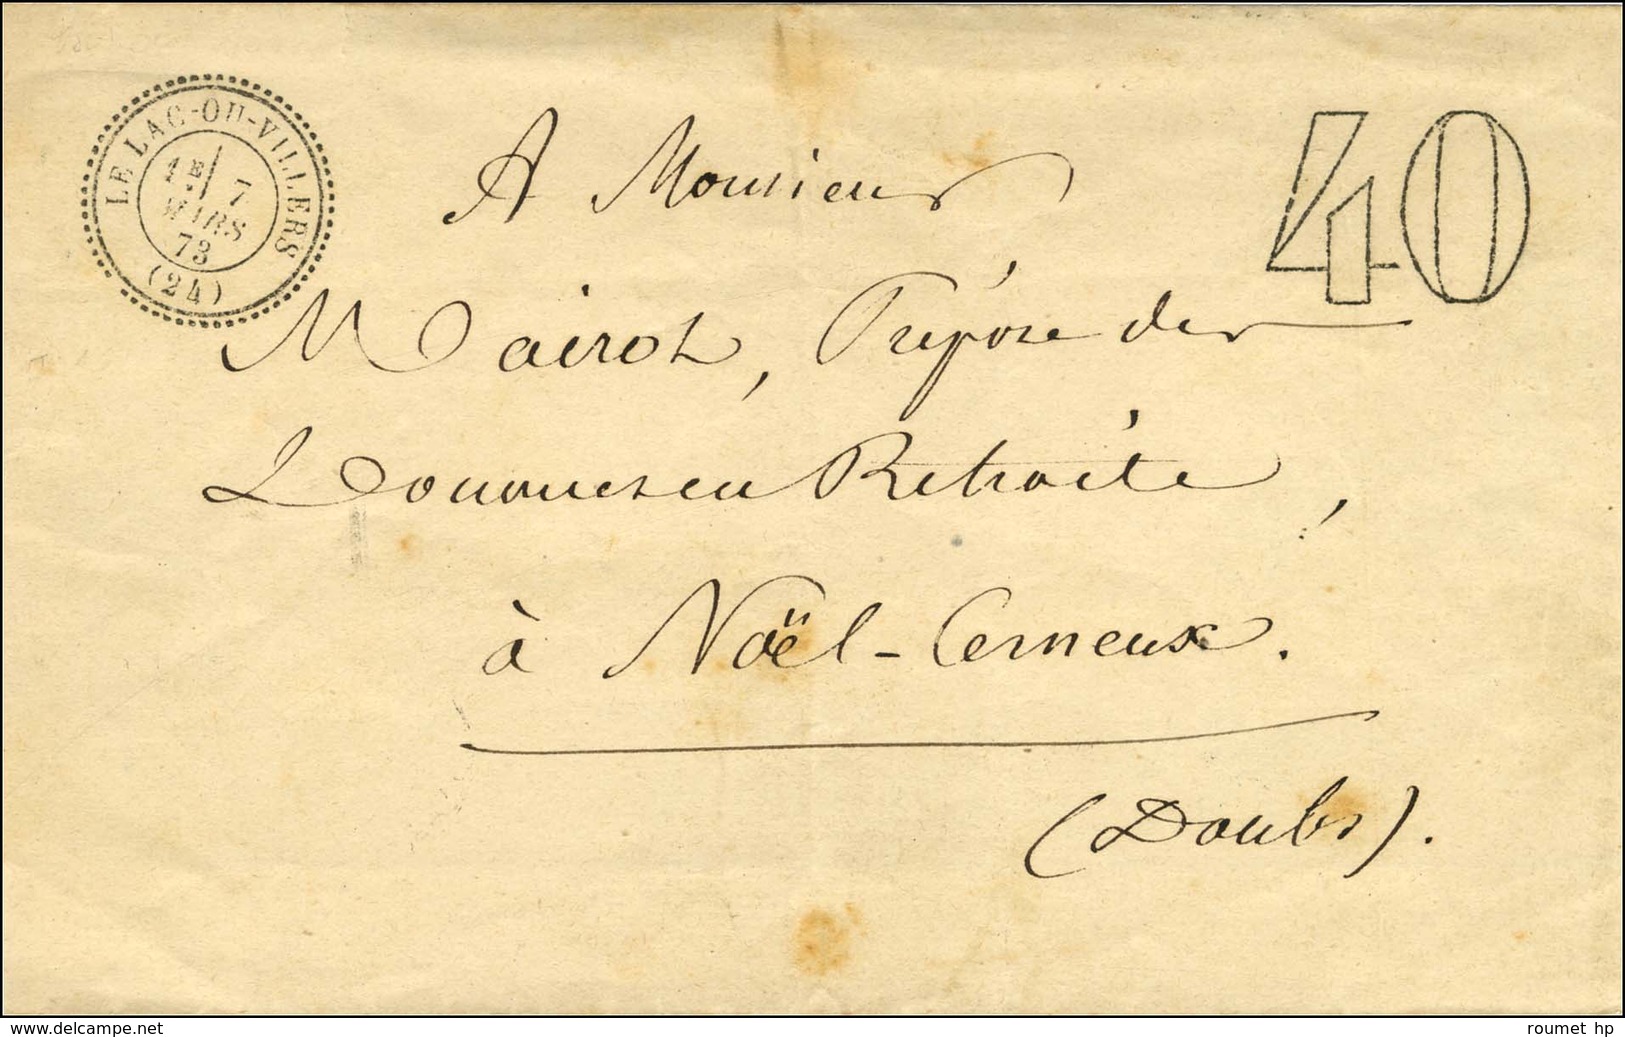 LE LAC-OU-VILLERS
1E / 7
MARS
73
(24)
40
A Monsieur
Mairot, Préposé des
Douanes en Retraite,
à Noël-Cerneux.
(Doubs).
www.delcampe.net
roumet hp